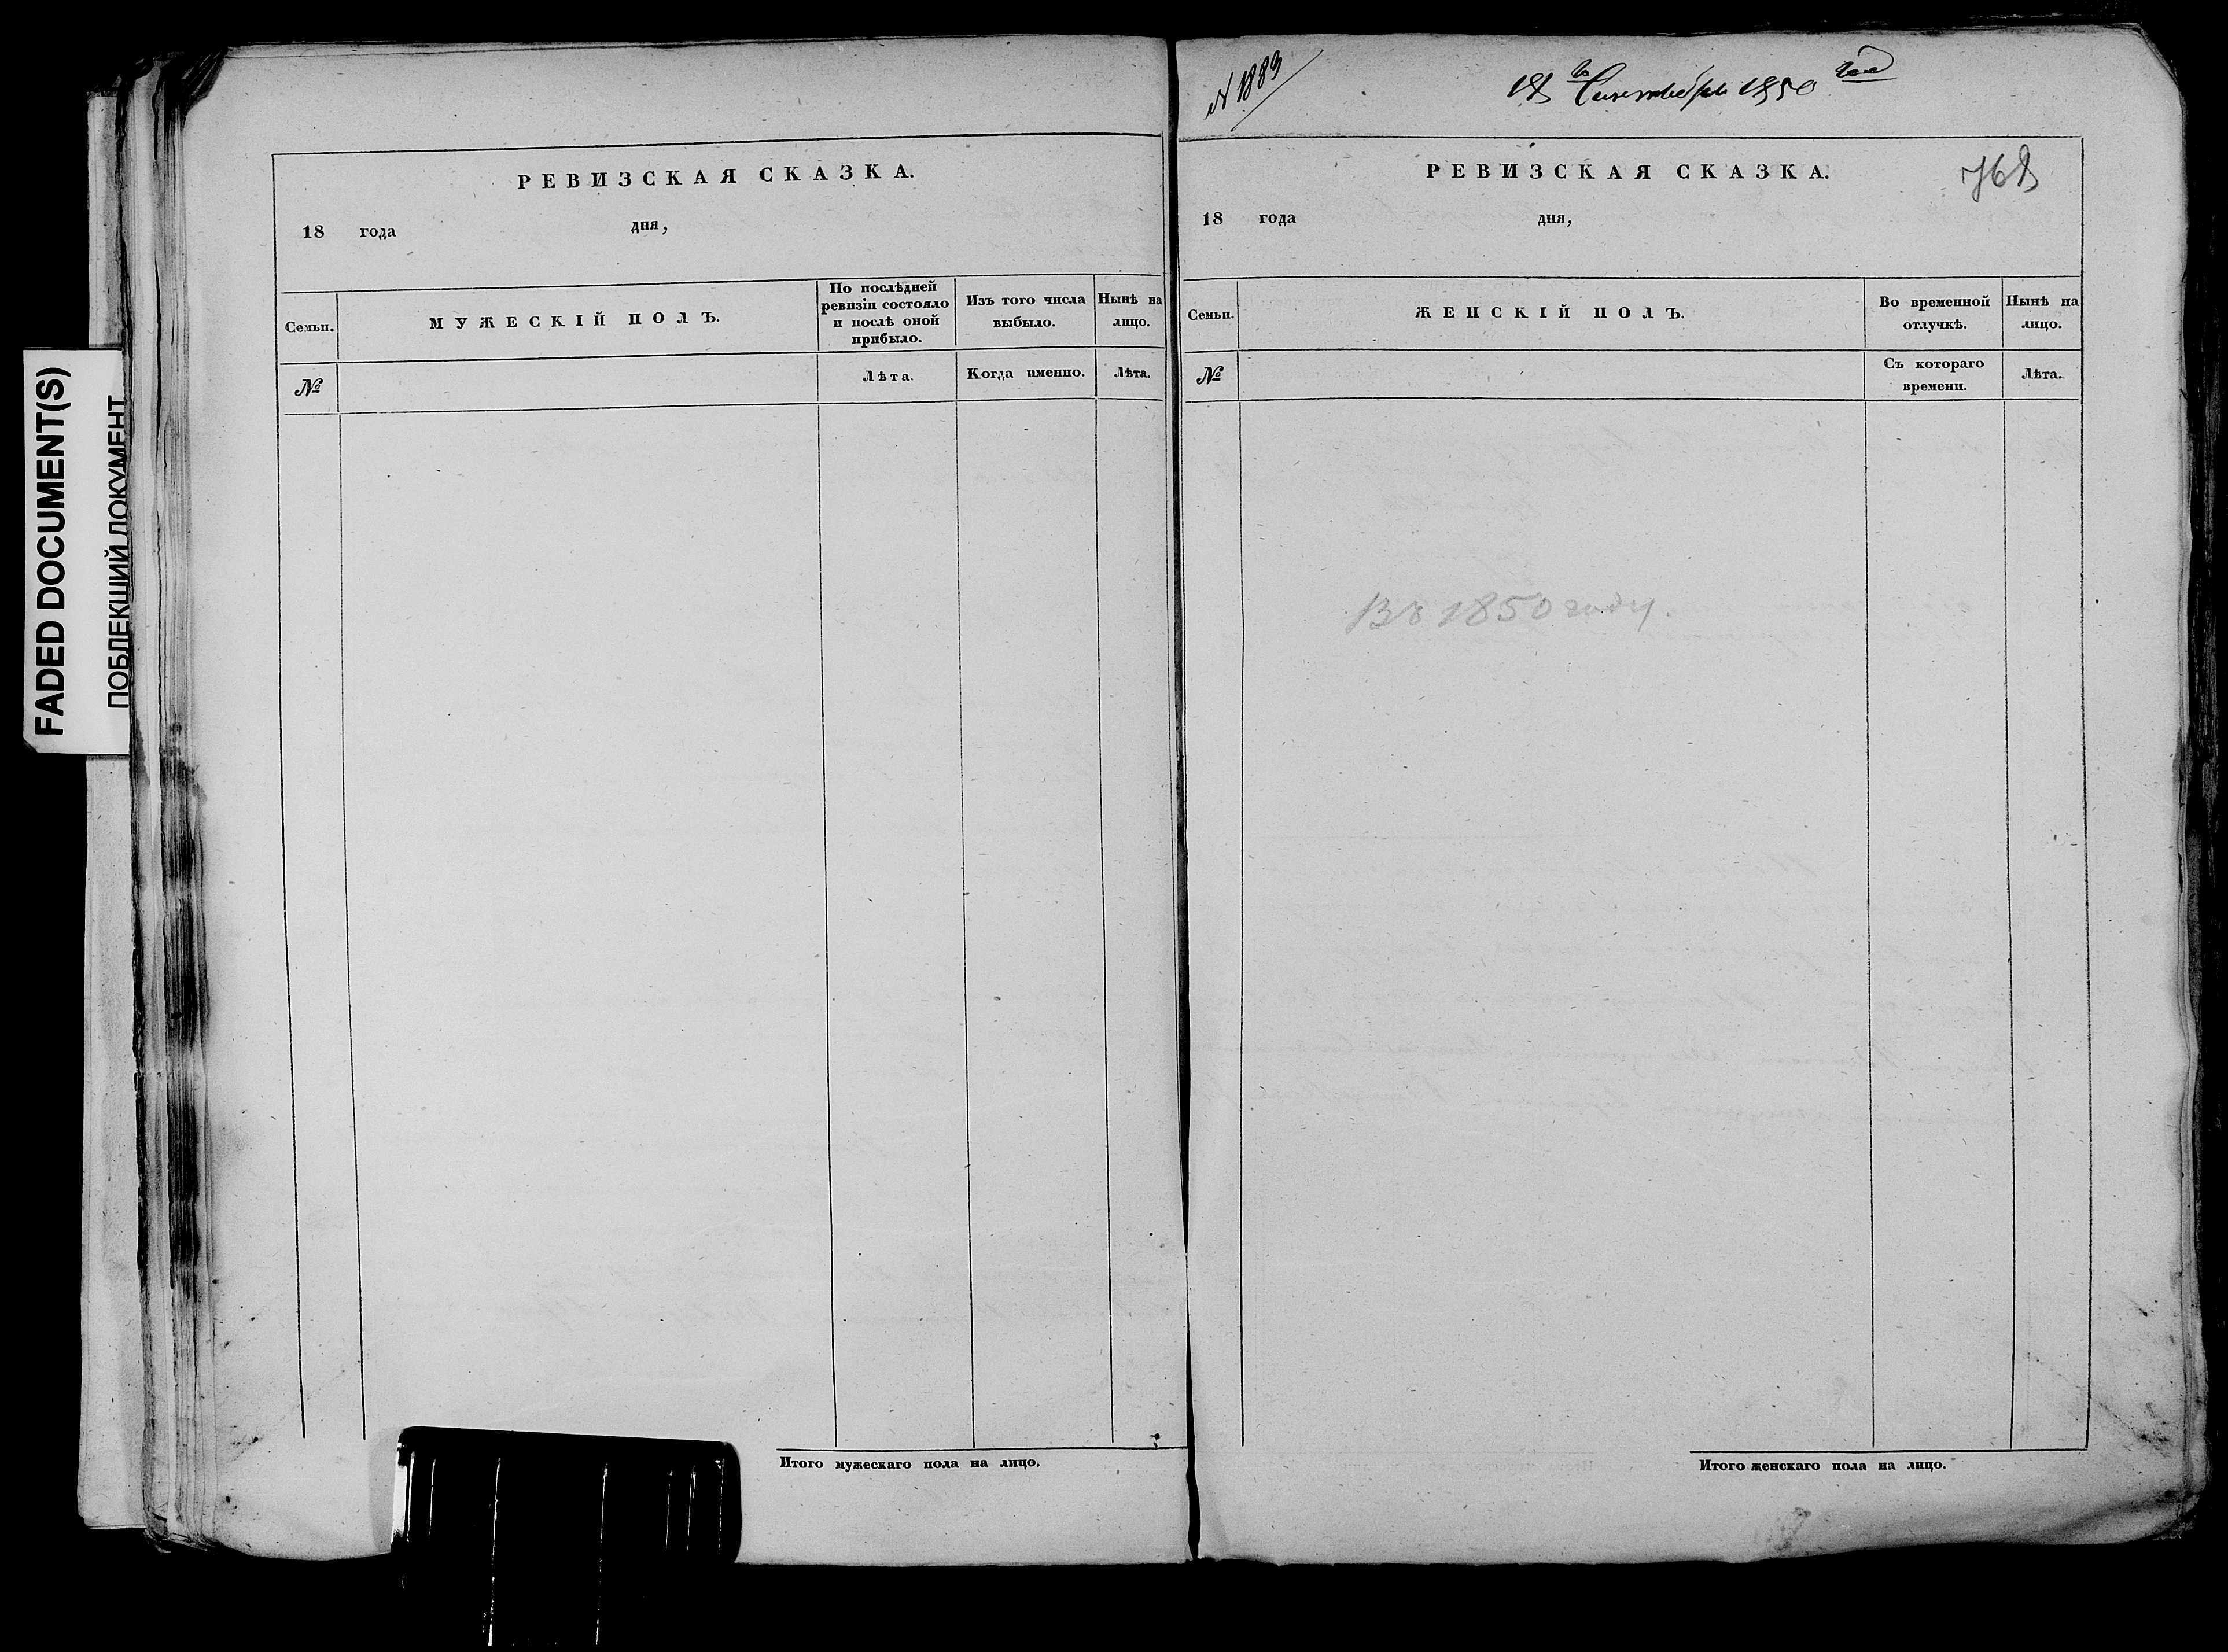 FADED DOCUMENT(S)
ПОБЛЕКШИЙ ДОКУМЕНТ
РЕВИЗСКАЯ СКАЗКА.
18 года дня,
Семьи. МУЖЕСКІЙ ПОЛЪ. По послѣдней ревизіи состояло и послѣ оной прибыло. Изъ того числа выбыло. Нынѣ на лицо.
№ Лѣта. Когда именно. Лѣта.
Итого мужескаго пола на лицо.
N 1883
18 Сентября 1850 года
РЕВИЗСКАЯ СКАЗКА.
768
18 года дня,
Семьи. ЖЕНСКІЙ ПОЛЪ. Во временной отлучкѣ. Нынѣ на лицо.
№ Съ котораго времени. Лѣта.
Въ 1850 году.
Итого женскаго пола на лицо.